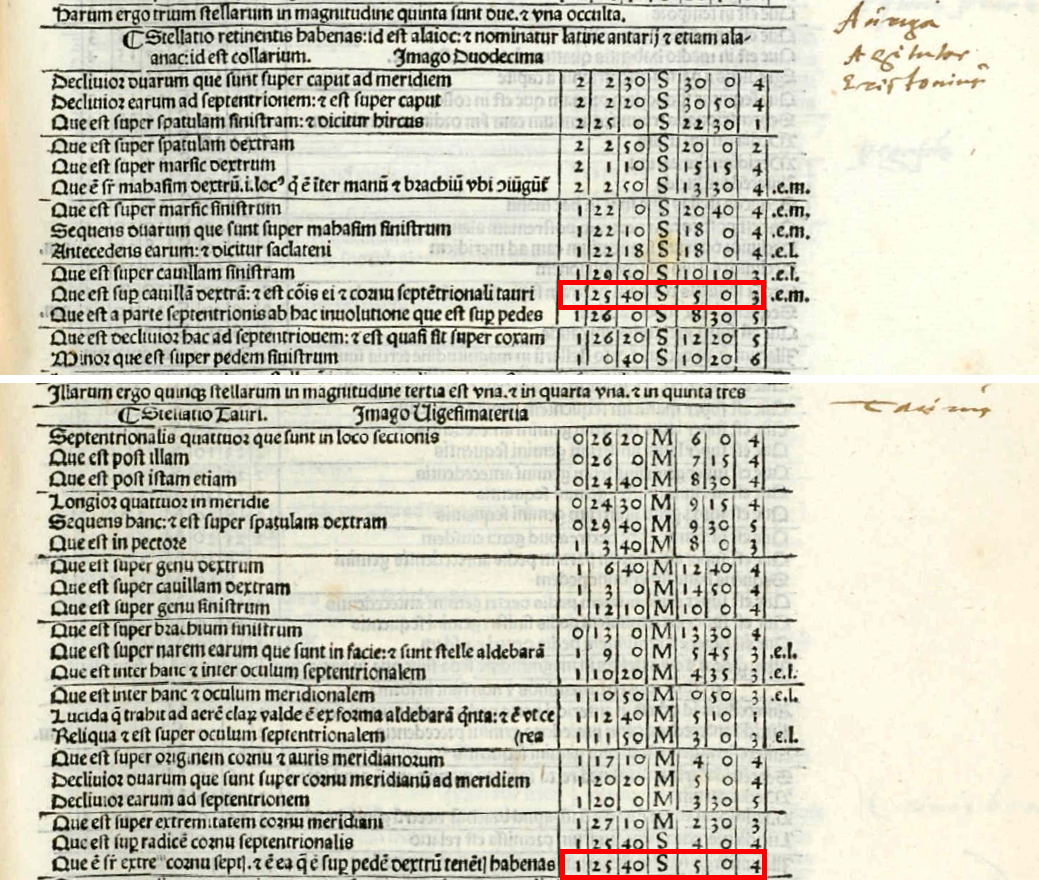 Harum ergo trium stellarum in magnitudine quinta sunt due. ⁊ vna occulta.
Auriga
Stellatio retinentis habenas: id est alaioc: ⁊ nominatur latine antarij ⁊ etiam ala-
anac: id est collarium. Imago Duodecima
Agitator
Ericтonius
Decliuior duarum que sunt super caput ad meridiem 2 2 30 S 30 0 4
Decliuior earum ad septentrionem: ⁊ est super caput 2 2 20 S 30 50 4
Que est super spatulam sinistram: ⁊ dicitur hircus 2 25 0 S 22 30 1
Que est super spatulam dextram 2 2 50 S 20 0 2
Que est super marfic dextrum 2 1 10 S 15 15 4
Que ē sr mahasim dextrū. i. locꝰ q̄ ē iter manū ⁊ brachiū vbi ɔiūgūt 2 2 50 S 13 30 4 .e.m.
Que est super marfic sinistrum 1 22 0 S 20 40 4 .e.m.
Sequens duarum que sunt super mahasim sinistrum 1 22 10 S 18 0 4 .e.m.
Antecedens earum: ⁊ dicitur saclateni 1 22 18 S 18 0 4 .e.l.
Que est super cauillam sinistram 1 29 50 S 10 10 3 .e.l.
Que est suꝑ cauillā dextrā: ⁊ est cōis ei ⁊ cornu septētrionali tauri 1 25 40 S 5 0 3 .e.m.
Que est a parte septentrionis ab hac inuolutione que est suꝑ pedes 1 26 0 S 8 30 5
Que est decliuior hac ad septentrionem: ⁊ est quasi sit super coxam 1 26 20 S 12 20 5
Minor que est super pedem sinistrum 1 0 40 S 10 20 6
Illarum ergo quinqꝫ stellarum in magnitudine tertia est vna. ⁊ in quarta vna. ⁊ in quinta tres
Stellatio Tauri. Imago Uigesimatertia
Taurus
Septentrionalis quattuor que sunt in loco sectionis 0 26 20 M 6 0 4
Que est post illam 0 26 0 M 7 15 4
Que est post istam etiam 0 24 40 M 8 30 4
Longior quattuor in meridie 0 24 30 M 9 15 4
Sequens hanc: ⁊ est super spatulam dextram 0 29 40 M 9 30 5
Que est in pectore 1 3 40 M 8 0 3
Que est super genu dextrum 1 6 40 M 12 40 4
Que est super cauillam dextram 1 3 0 M 14 50 4
Que est super genu sinistrum 1 12 10 M 10 0 4
Que est super brachium sinistrum 0 13 0 M 13 30 4
Que est super narem earum que sunt in facie: ⁊ sunt stelle aldebarā 1 9 0 M 5 45 3 .e.l.
Que est inter hanc ⁊ inter oculum septentrionalem 1 10 20 M 4 35 3 .e.l.
Que est inter hanc ⁊ oculum meridionalem 1 10 50 M 0 50 3 .e.l.
Lucida q̄ trahit ad aerē claꝝ valde ē ex forma aldebarā q̄nta: ⁊ ē vt ce 1 12 40 M 5 10 1
Reliqua ⁊ est super oculum septentrionalem (rea 1 11 50 M 3 0 3 .e.l.
Que est super originem cornu ⁊ auris meridianorum 1 17 10 M 4 0 4
Decliuior duarum que sunt super cornu meridianū ad meridiem 1 20 20 M 5 0 4
Decliuior earum ad septentrionem 1 20 0 M 3 30 5
Que est super extremitatem cornu meridiani 1 27 10 M 2 30 3
Que est suꝑ radicē cornu septentrionalis 1 25 40 S 4 0 4
Que ē sr extre cornu septl. ⁊ ē ea q̄ ē suꝑ pedē dextrū tenētꝭ habenas 1 25 40 S 5 0 4